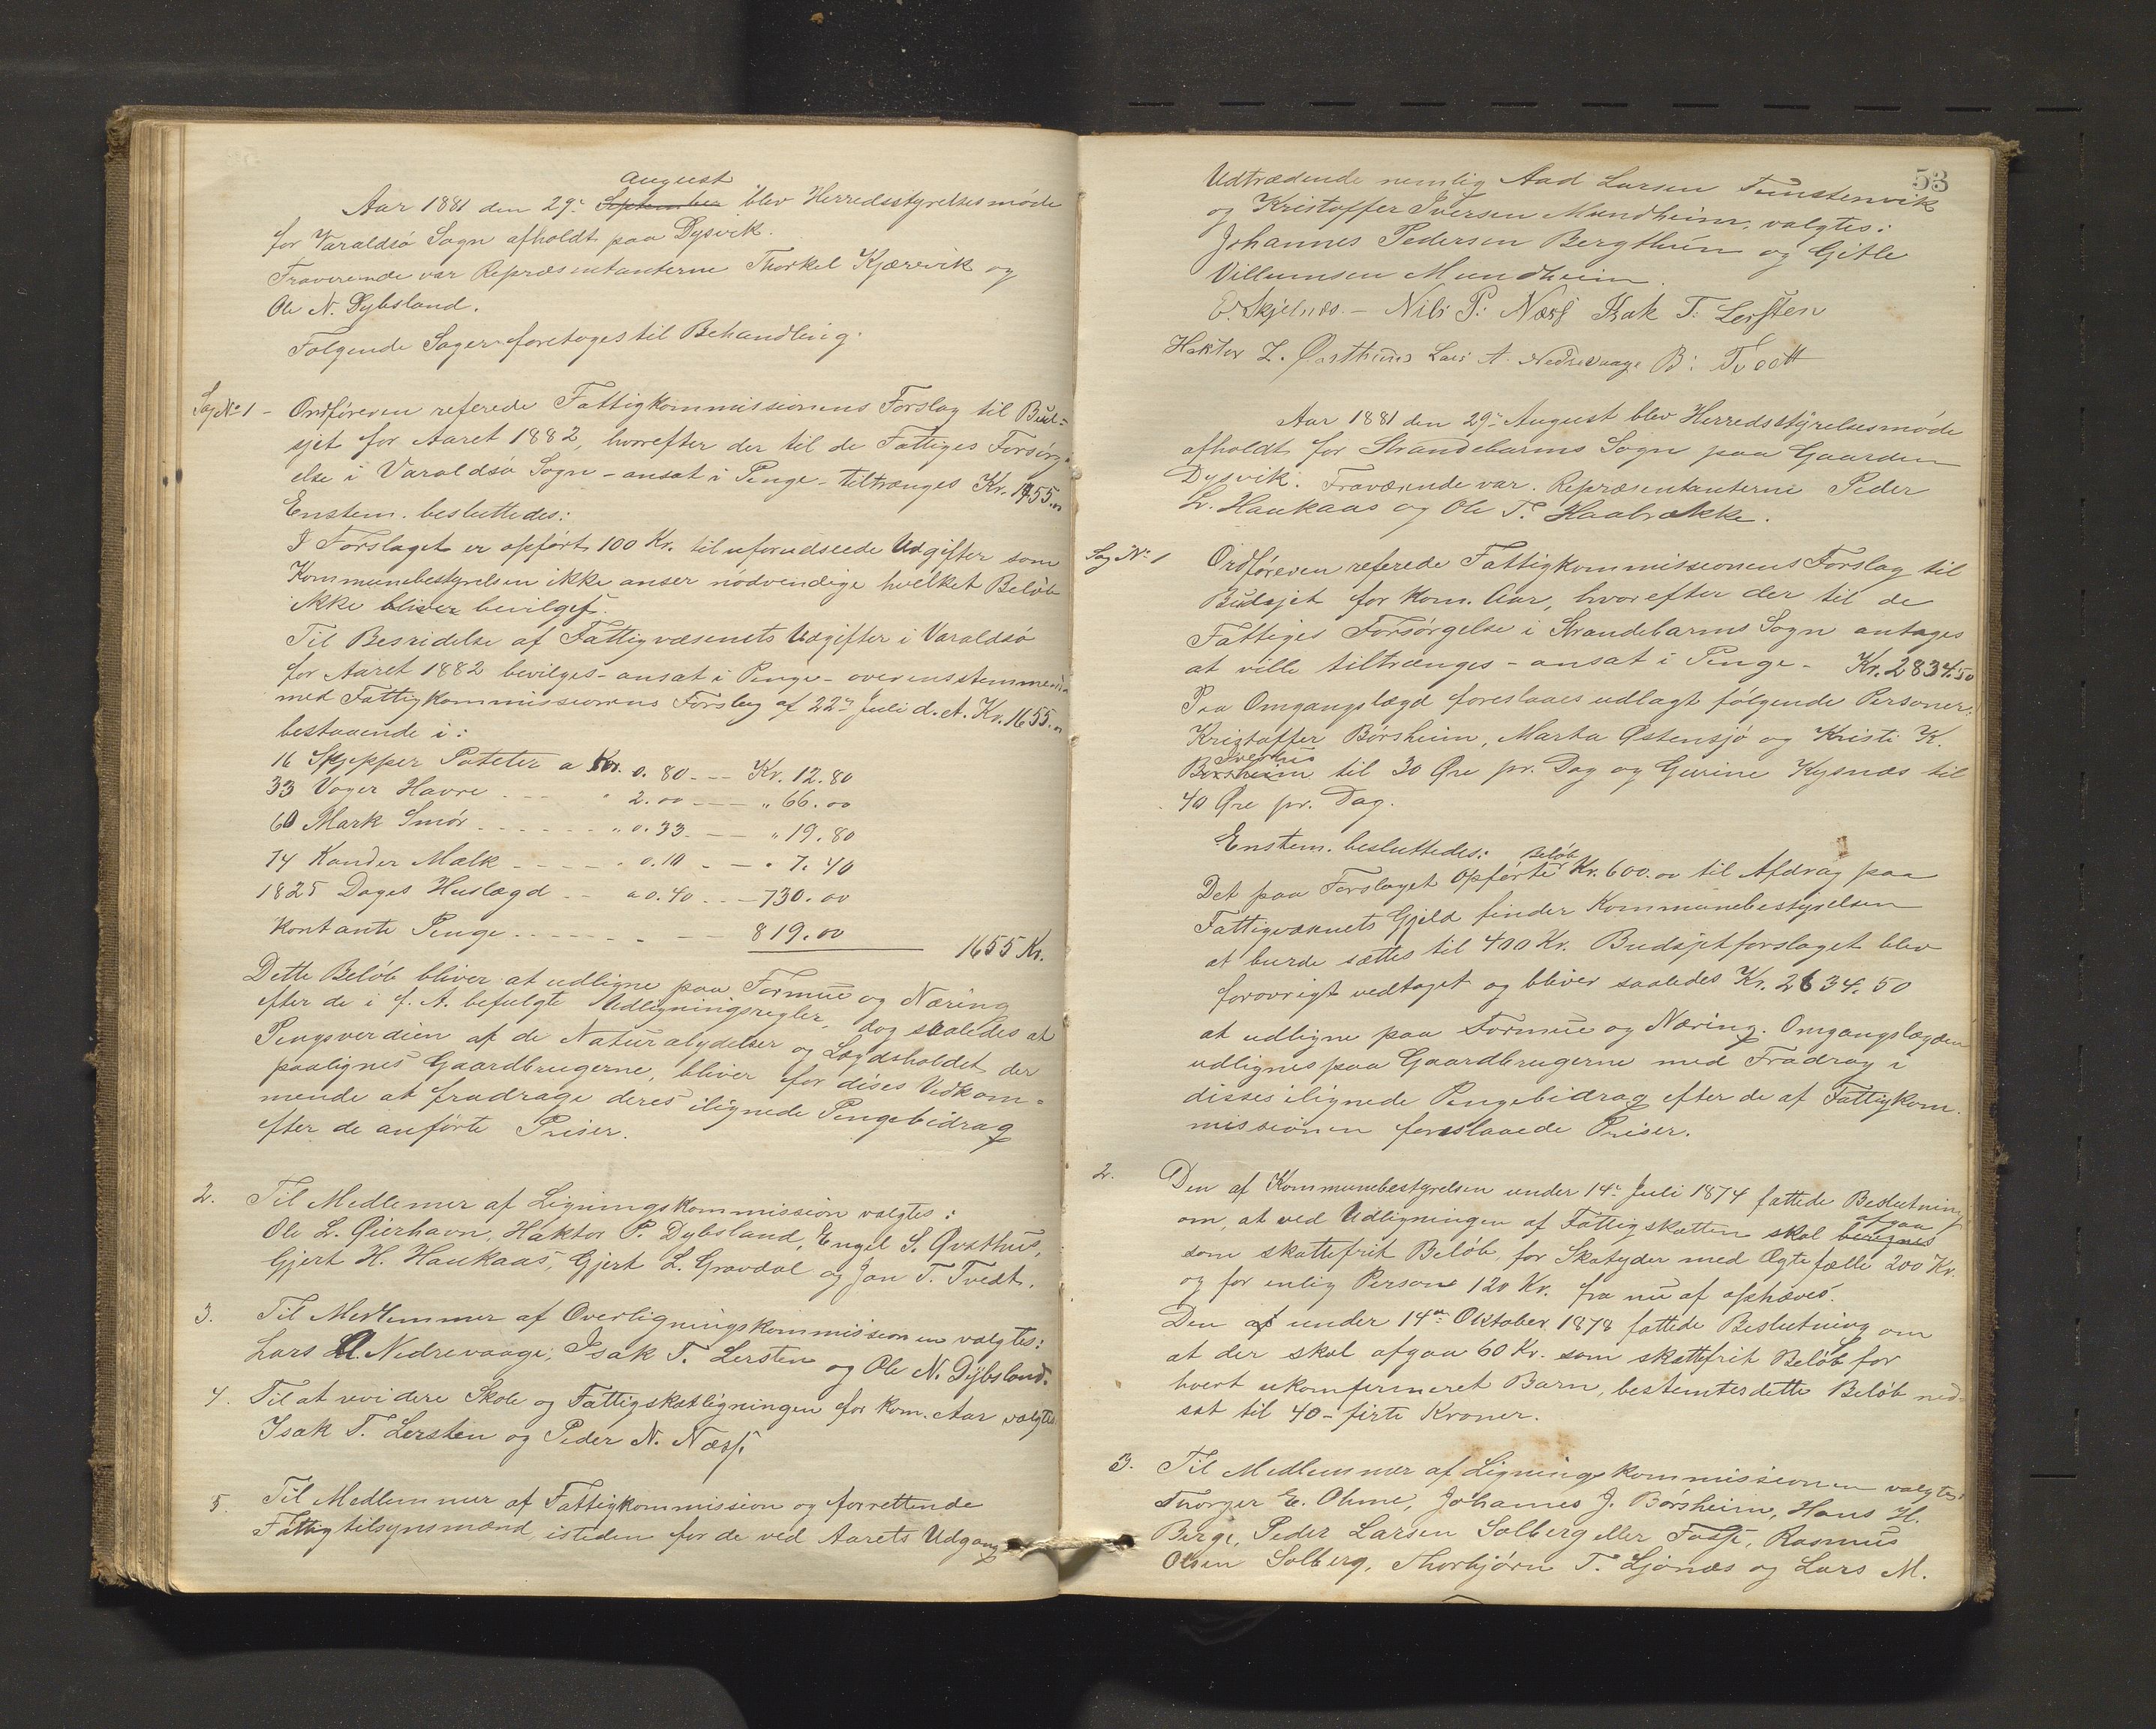 August
Aar 1881 den 29de September blev Herredsstyrelsesmøde
for Varaldsø Sogn afholdt paa Dysvik.
Fraværende var Repræsentanterne Thorkel Kjærevik og
Ole N. Dybsland.
Følgende Sager foretoges til Behandling:
Sag No 1 - Ordføreren referede Fattigkommissionens Forslag til Bud-
sjet for Aaret 1882, hvorefter der til de Fattiges Forsørg-
else i Varaldsø Sogn - ansat i Penge - tiltrænges Kr. 1755.00
Enstem. besluttedes:
I Forslaget er opført 100 Kr. til uforudseede Udgifter som
Kommunebestyrelsen ikke anser nødvendige hvilket Beløb
ikke bliver bevilget.
Til Besridelse af Fattigvæsenets Udgifter i Varaldsø
for Aaret 1882 bevilges - ansat i Penge - overensstemmende
med Fattigkommissionens Forslag af 22de Juli d. A. Kr. 1655.00
bestaaende i:
16 Skjepper Poteter a Kr. 0.80 - - Kr. 12.80
33 Voger Havre - - - " 2.00 - - - " 66.00
60 Mark Smør - - - - - - " 0.33 - - " 19.80
74 Kander Mælk - - - - " 0.10 - - " 7.40
1825 Dages Huslægd - - a 0.40 - - 730.00
Kontante Penge - - - - - - - 819.00
1655 Kr.
Dette Beløb bliver at udligne paa Formue og Næring
efter de i f. A. befulgte Udligningsregler, dog saaledes at
Pengeverdien af de Naturalydelser og Lægdsholdet der
paalignes Gaardbrugerne, bliver for disses Vedkom-
mende at fradrage deres ilignede Pengebidrag
efter de anførte Priser.
2. Til Medlemer af Ligningskommission valgtes:
Ole L. Gierhavn, Haktor P. Dybsland, Engel S. Qvsthus,
Gjert H. Haukaas, Gjert L. Gravdal og Jan T. Tvedt.
3. Til Medlemmer af Overligningskommissionen valgtes:
Lars A. Nedrevaage, Isak T. Lersten og Ole N. Dybsland.
4. Til at revidere Skole og Fattigskatligningen for kom. Aar valgtes
Isak T. Lersten og Peder N. Næss.
5. Til Medlemmer af Fattigkommission og forrettende
Fattigtilsynsmænd isteden for de ved Aarets Udgang
53
Udtrædende nemlig Aad Larsen Teinstenvik
og Kristoffer Iversen Mundheim, valgtes:
Johannes Pedersen Bergthun og Gitle
Villumsen Mundheim.
E. Skjelnes. - Nils P. Næss Isak T. Lersten
Haktor L. Qvsthus Lars A. Nedrevaage B. Tvedt
Aar 1881 den 29de August blev Herredsstyrelsesmøde
afholdt for Strandebarms Sogn paa Gaarden
Dysvik. Fraværende var Repræsentanterne Peder
L. Haukaas og Ole T. Haabrække.
Sag No 1 Ordføreren referede Fattigkommissionens Forslag til
Budsjet for kom. Aar, hvorefter der til de
Fattiges Forsørgelse i Strandebarms Sogn antages
at ville tiltrænges - ansat i Penge - Kr. 2834.50
Paa Omgangslægd foreslaaes udlagt følgende Personer:
Kristoffer Børsheim, Marta Østensjø og Kristi K.
Børsheim til 30 Øre pr. Dag og Gurine Kysnæs til
40 Øre pr. Dag.
Enstem. besluttedes:
Det paa Forslaget opførte Beløb Kr. 600.00 til Afdrag paa
Fattigvæsnets Gjeld finder Kommunebestyrelsen
at burde sættes til 400 Kr. Budsjetforslaget blev
forøvrigt vedtaget og bliver saaledes Kr. 2634.50
at udligne paa Formue og Næring. Omgangslægden
udlignes paa Gaardbrugerne med Fradrag i
disses ilignede Pengebidrag efter de af Fattigkom-
missionen foreslaaede Priser.
2. Den af Kommunebestyrelsen under 14de Juli 1874 fattede Beslutning
om, at ved Udligningen af Fattigskatten skal beregnes afgaa
som skattefrit Beløb, for Skatyder med Ægtefælle 200 Kr.
og for enlig Person 120 Kr. fra nu af ophæves.
Den af under 14de Oktober 1878 fattede Beslutning om
at der skal afgaa 60 Kr. som skattefrit Beløb for
hvert ukomfirmeret Barn, bestemtes dette Beløb ned-
sat til 40 - firti Kroner.
3. Til Medlemmer af Ligningskommissionen valgtes:
Thorger E. Ohme, Johannes J. Børsheim, Hans H.
Berge, Peder Larsen Solberg eller Fosse, Rasmus
Olsen Solberg, Thorbjørn T. Ljønæs og Lars M.